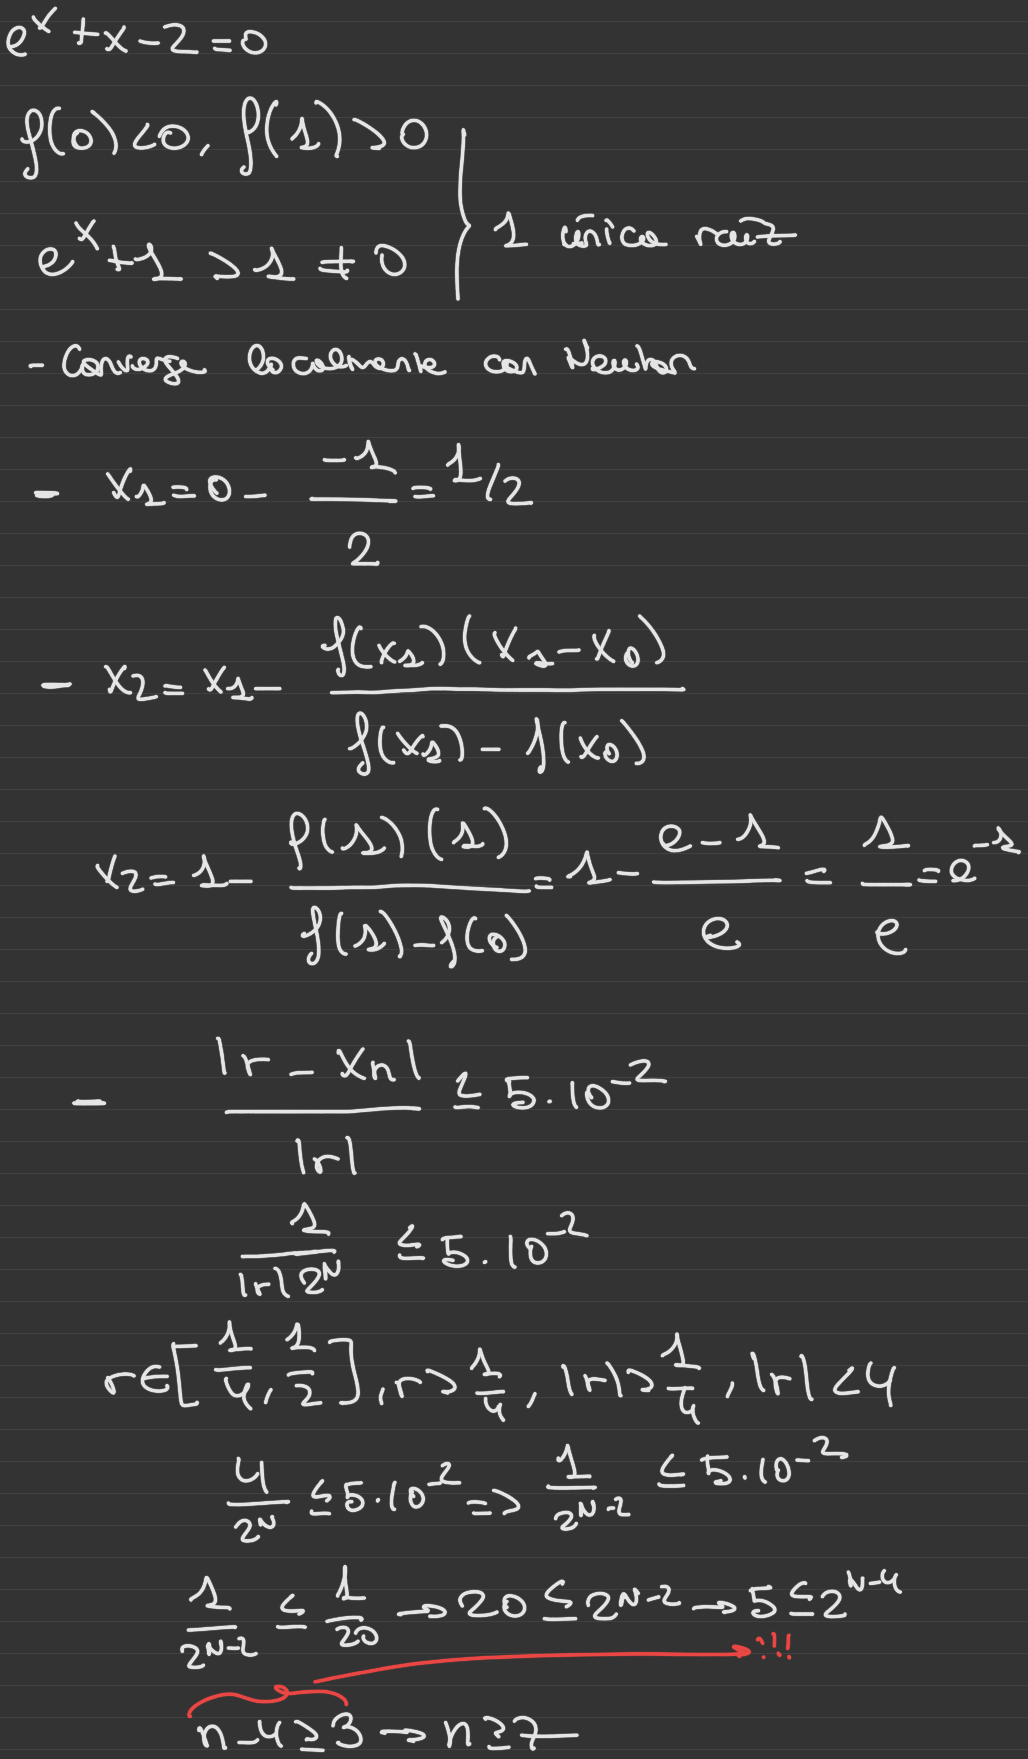 e^x + x - 2 = 0
f(0) < 0, f(1) > 0
e^x + 1 > 1 ≠ 0 } 1 única raíz
- Converge localmente con Newton
- x_1 = 0 - \frac{-1}{2} = 1/2
- x_2 = x_1 - \frac{f(x_1)(x_1 - x_0)}{f(x_1) - f(x_0)}
x_2 = 1 - \frac{f(1)(1)}{f(1) - f(0)} = 1 - \frac{e - 1}{e} = \frac{1}{e} = e^{-1}
- \frac{|r - xn|}{|r|} ≤ 5.10^{-2}
\frac{1}{|r| 2^N} ≤ 5.10^{-2}
r ∈ [\frac{1}{4}, \frac{1}{2}], r > \frac{1}{4}, |r| > \frac{1}{4}, |r| < 4
\frac{4}{2^N} ≤ 5.10^{-2} => \frac{1}{2^{N-2}} ≤ 5.10^{-2}
\frac{1}{2^{N-2}} ≤ \frac{1}{20} → 20 ≤ 2^{N-2} → 5 ≤ 2^{N-4}
!!!
n - 4 ≥ 3 → n ≥ 7